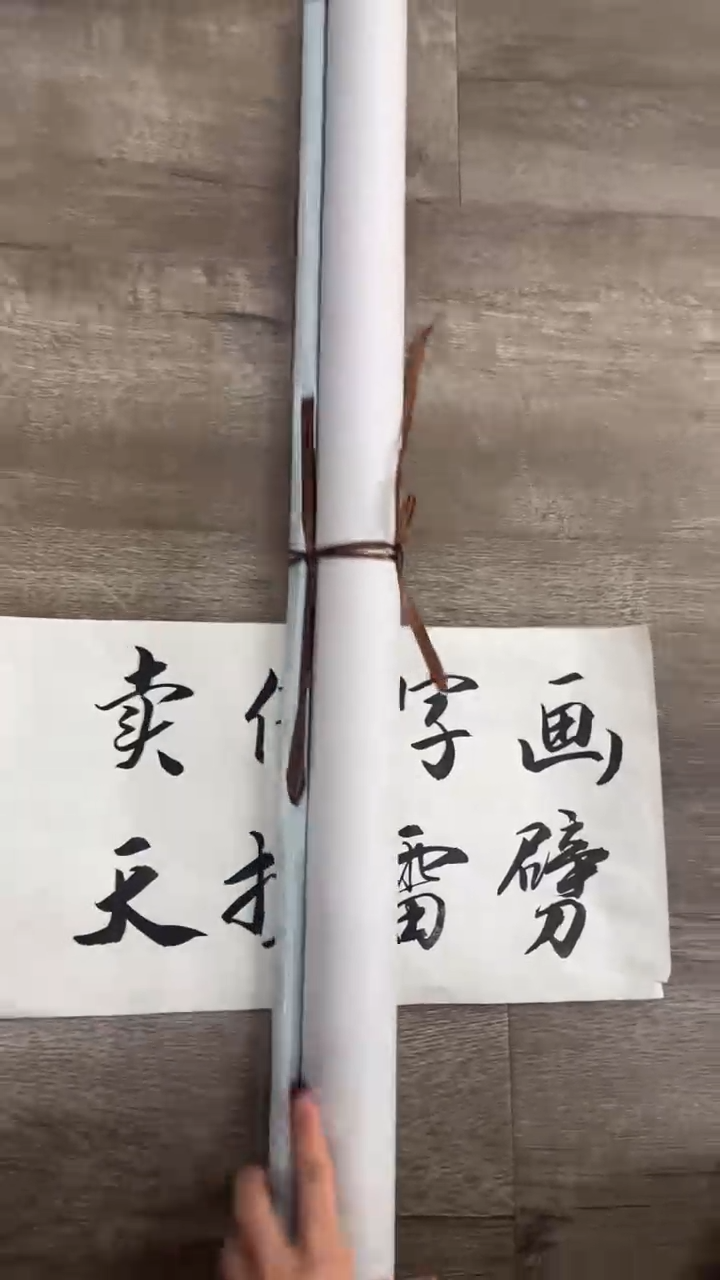 卖字画
天雷劈